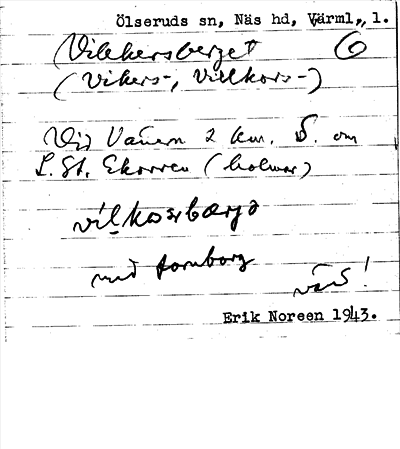 Ölseruds sn, Näs hd, Värml., l.
Vilkersberget 6
(Vikers-, Villkors-)
Vid Vänern 2 km. S. om
L. St. Ekorren (holmar)
med fornborg
Erik Noreen 1943.